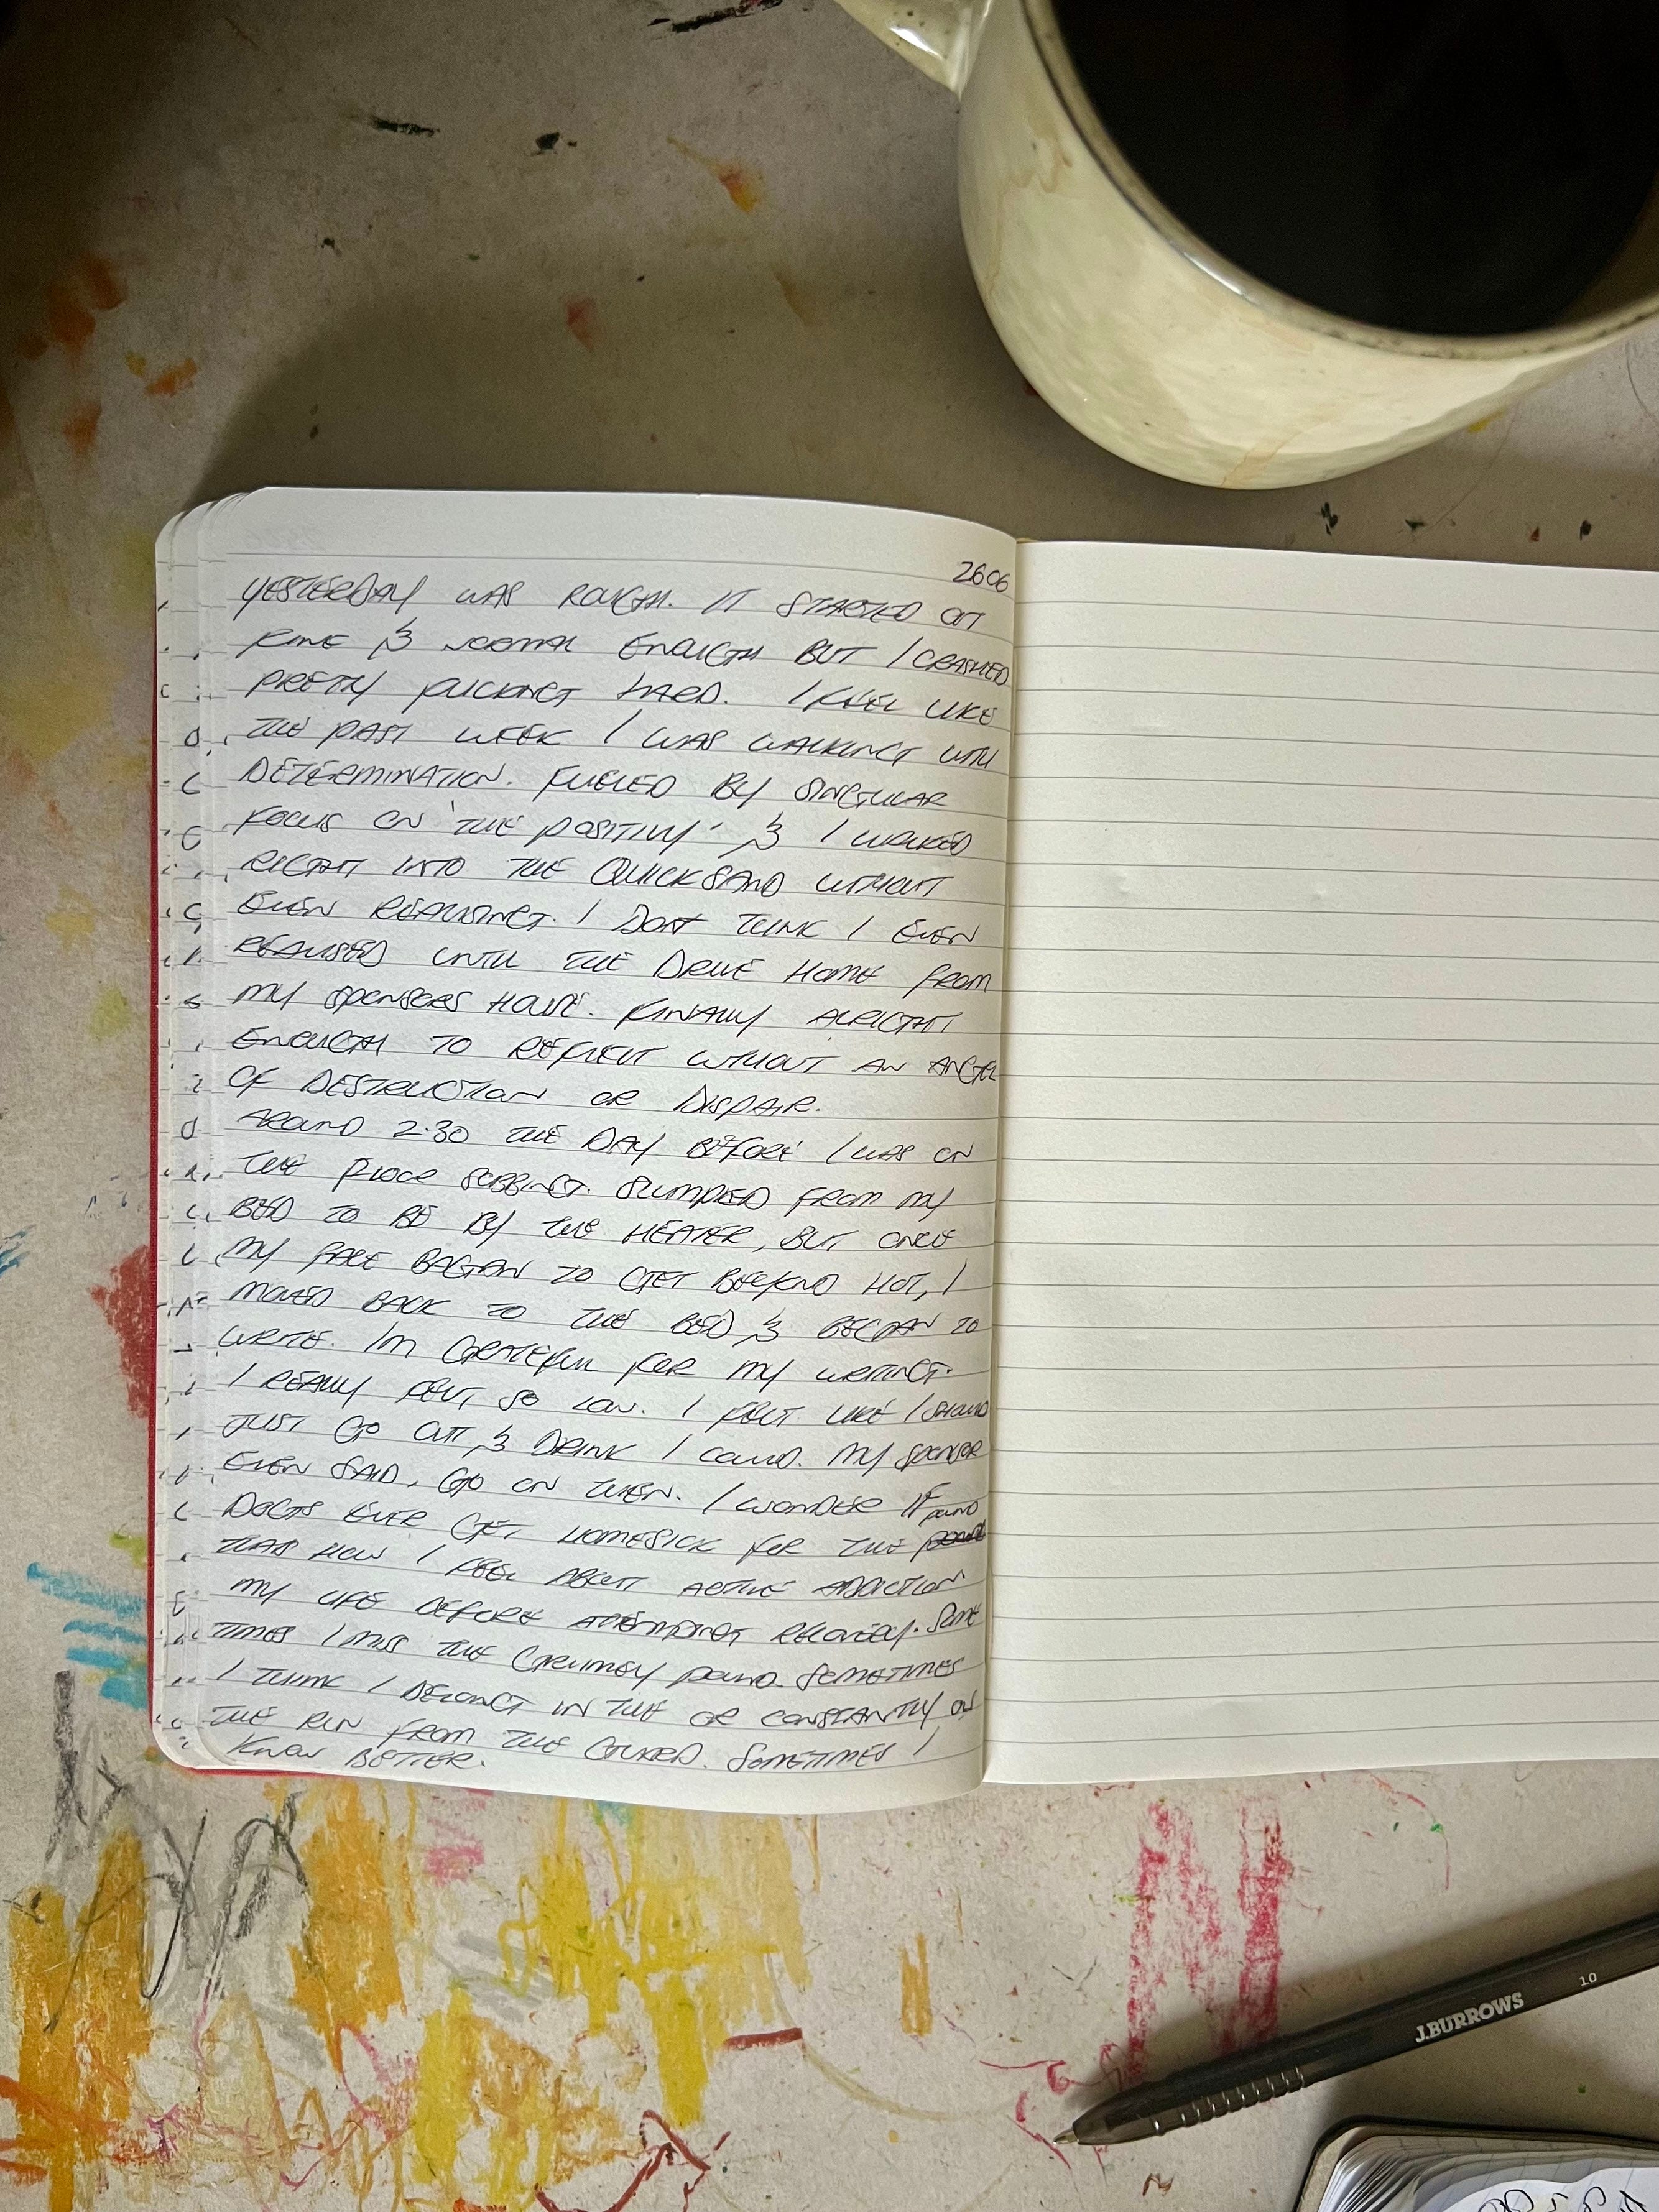 2606
YESTERDAY WAS ROUGH. IT STARTED OFF
FINE & NORMAL ENOUGH BUT I CRASHED
PRETTY FUCKING HARD. I FEEL LIKE
THE PAST WEEK I WAS WALKING WITH
DETERMINATION. FUELED BY SINGULAR
FOCUS ON 'THE POSITIVY' & I WALKED
RIGHT INTO THE QUICKSAND WITHOUT
EVEN REALISING. I DONT THINK I EVEN
REALISED UNTIL THE DRIVE HOME FROM
MY SPONSERS HOUSE. FINALLY ALRIGHT
ENOUGH TO REFLECT WITHOUT AN ANGEL
OF DESTRUCTION OR DISPAIR.
AROUND 2:30 THE DAY BEFORE I WAS ON
THE FLOOR SOBBING. SLUMPED FROM MY
BED TO BE BY THE HEATER, BUT ONCE
MY FACE BAGAN TO GET BEEYOND HOT, I
MOVED BACK TO THE BED & BEGAN TO
WRITE. IM GRATEFUL FOR MY WRITING.
I REALLY FELT SO LOW. I FELT LIKE I SHOULD
JUST GO OUT & DRINK I COULD. MY SPONSOR
EVEN SAID, GO ON THEN. I WONDER IF
DOGS EVER GET HOMESICK FOR THE POUND
THATS HOW I FEEL ABOUT ACTIVE ADDICTION
MY LIFE BEFORE ATTEMPTING RECOVERY. SOME
TIMES I MISS THE GRUMEY POUND. SOMETIMES
I THINK I BELONG IN THE OR CONSTANTLY ON
THE RUN FROM THE GUARD. SOMETIMES I
KNOW BETTER.
J.BURROWS 1.0